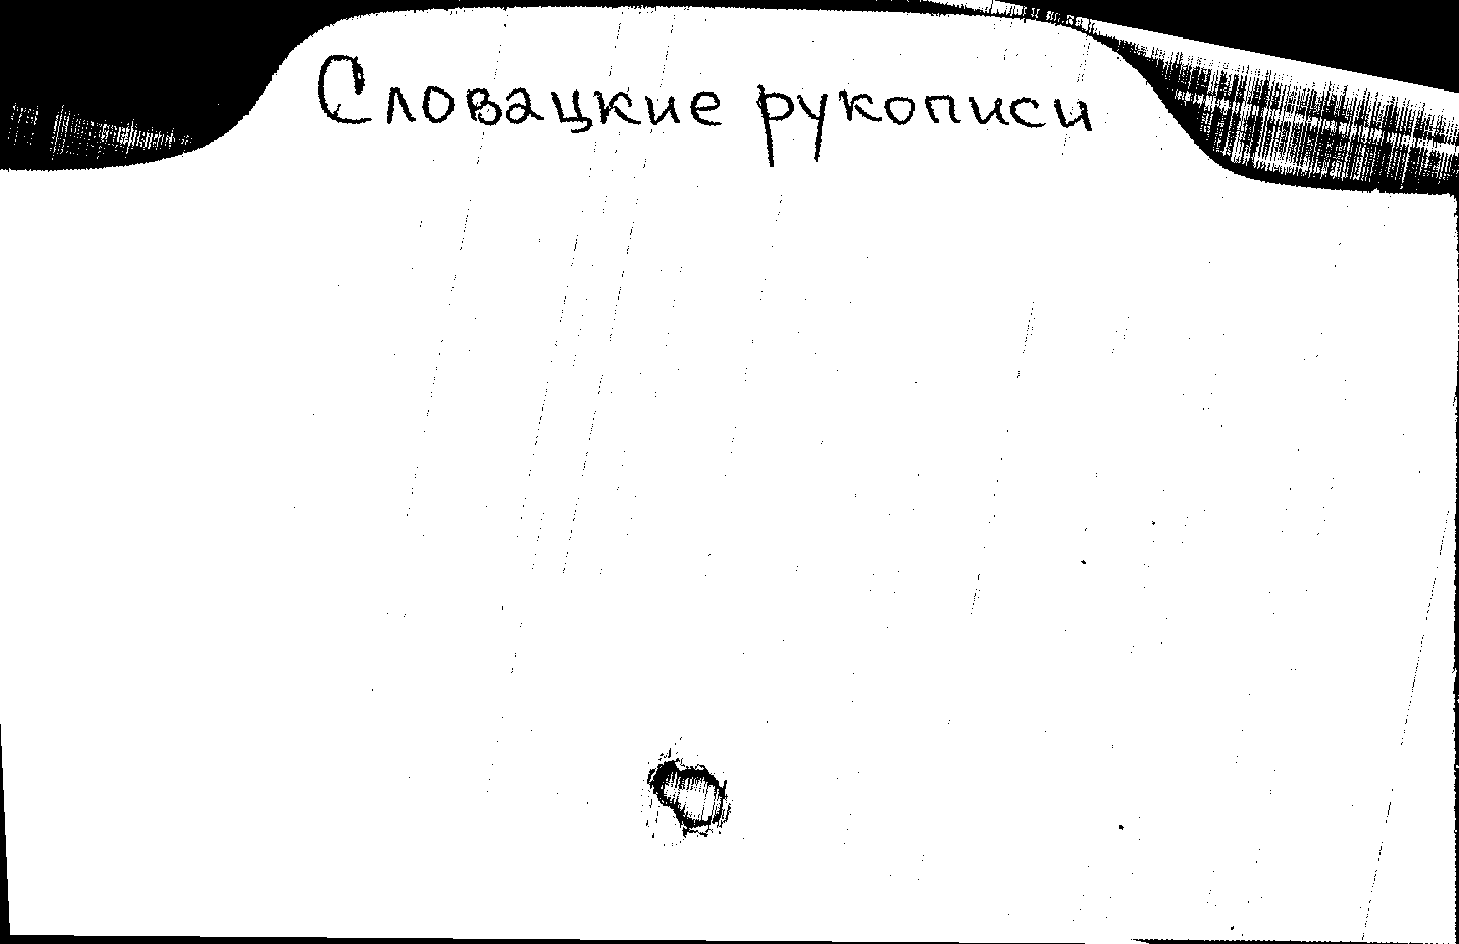 Словацкие рукописи